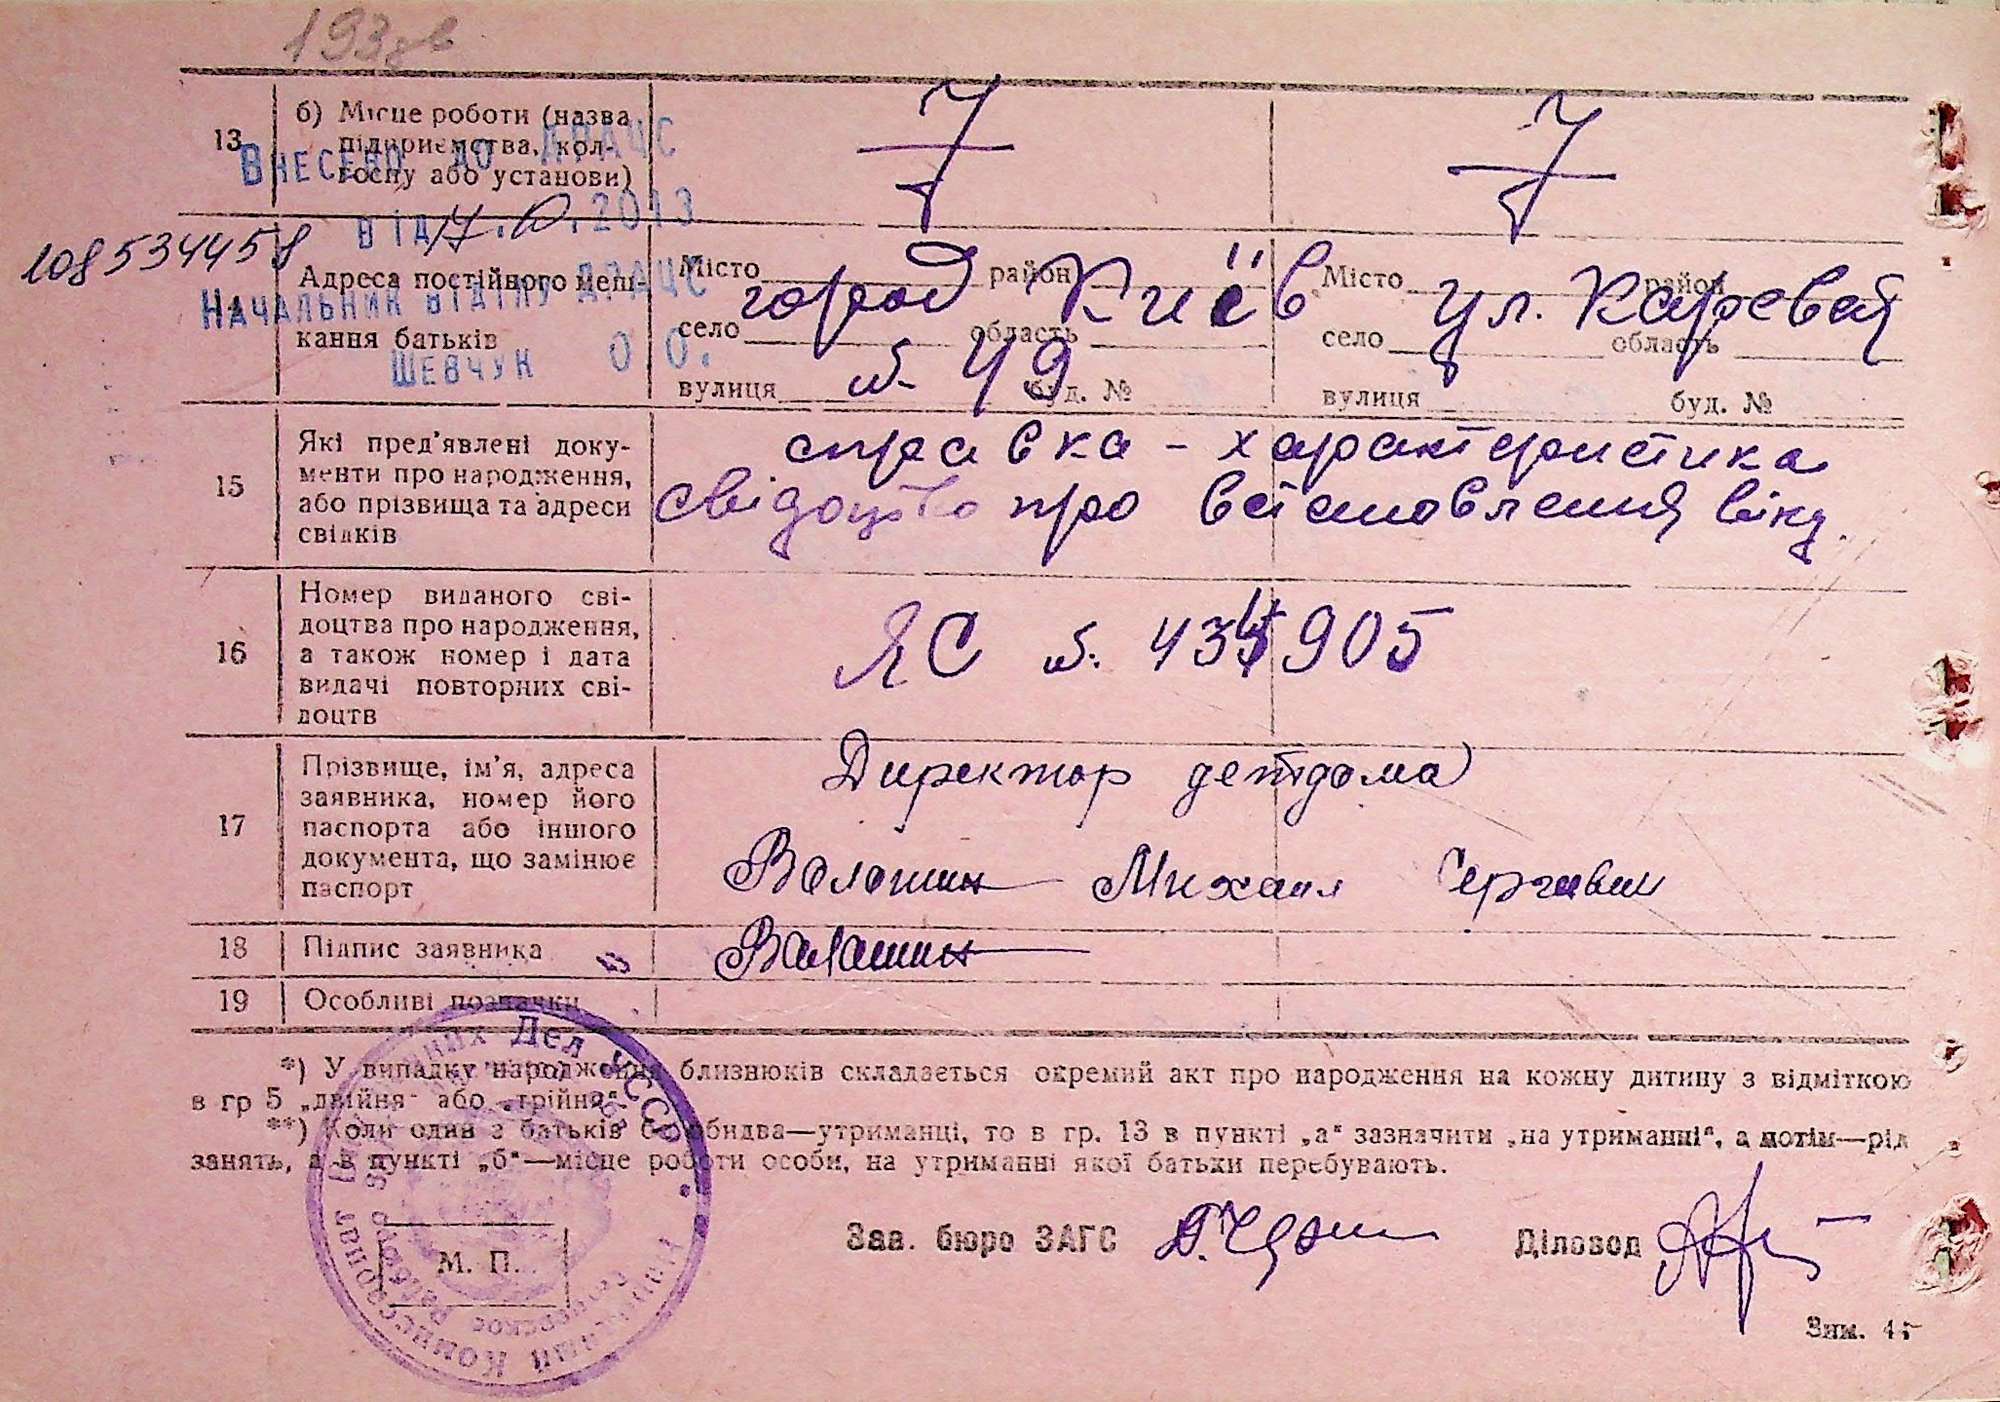 193зв
13
б) Місце роботи (назва
підприємства, кол-
госпу або установи)
Внесено до ДРАЦС
від 17.10.2013
108534458
Начальник відділу ДРАЦС
Шевчук О О.
14
Адреса постійного меш-
кання батьків
Місто район
село область
вулиця буд. №
Місто район
село область
вулиця буд. №
город Киів ул. Каревая
№ 49
15
Які пред'явлені доку-
менти про народження,
або прізвища та адреси
свідків
справка - характеристика
свідоцтво про встановлення віку.
16
Номер виданого сві-
доцтва про народження,
а також номер і дата
видачі повторних сві-
доцтв
ЯС №. 434905
17
Прізвище, ім'я, адреса
заявника, номер його
паспорта або іншого
документа, що замінює
паспорт
Директор детдома
Волошин Михаил
18
Підпис заявника
Волошин
19
Особливі позначки
*) У випадку народження близнюків складається окремий акт про народження на кожну дитину з відміткою
в гр 5 „двійня" або „трійня".
**) Коли один з батьків обидва—утриманці, то в гр. 13 в пункті „а" зазначити „на утриманні", а потім—рід
занять, а в пункті „б"—місце роботи особи, на утриманні якої батьки перебувають.
Народный Комиссариат Внутренних Дел УССР
М. П.
Зав. бюро ЗАГС
Діловод
Зим. 45